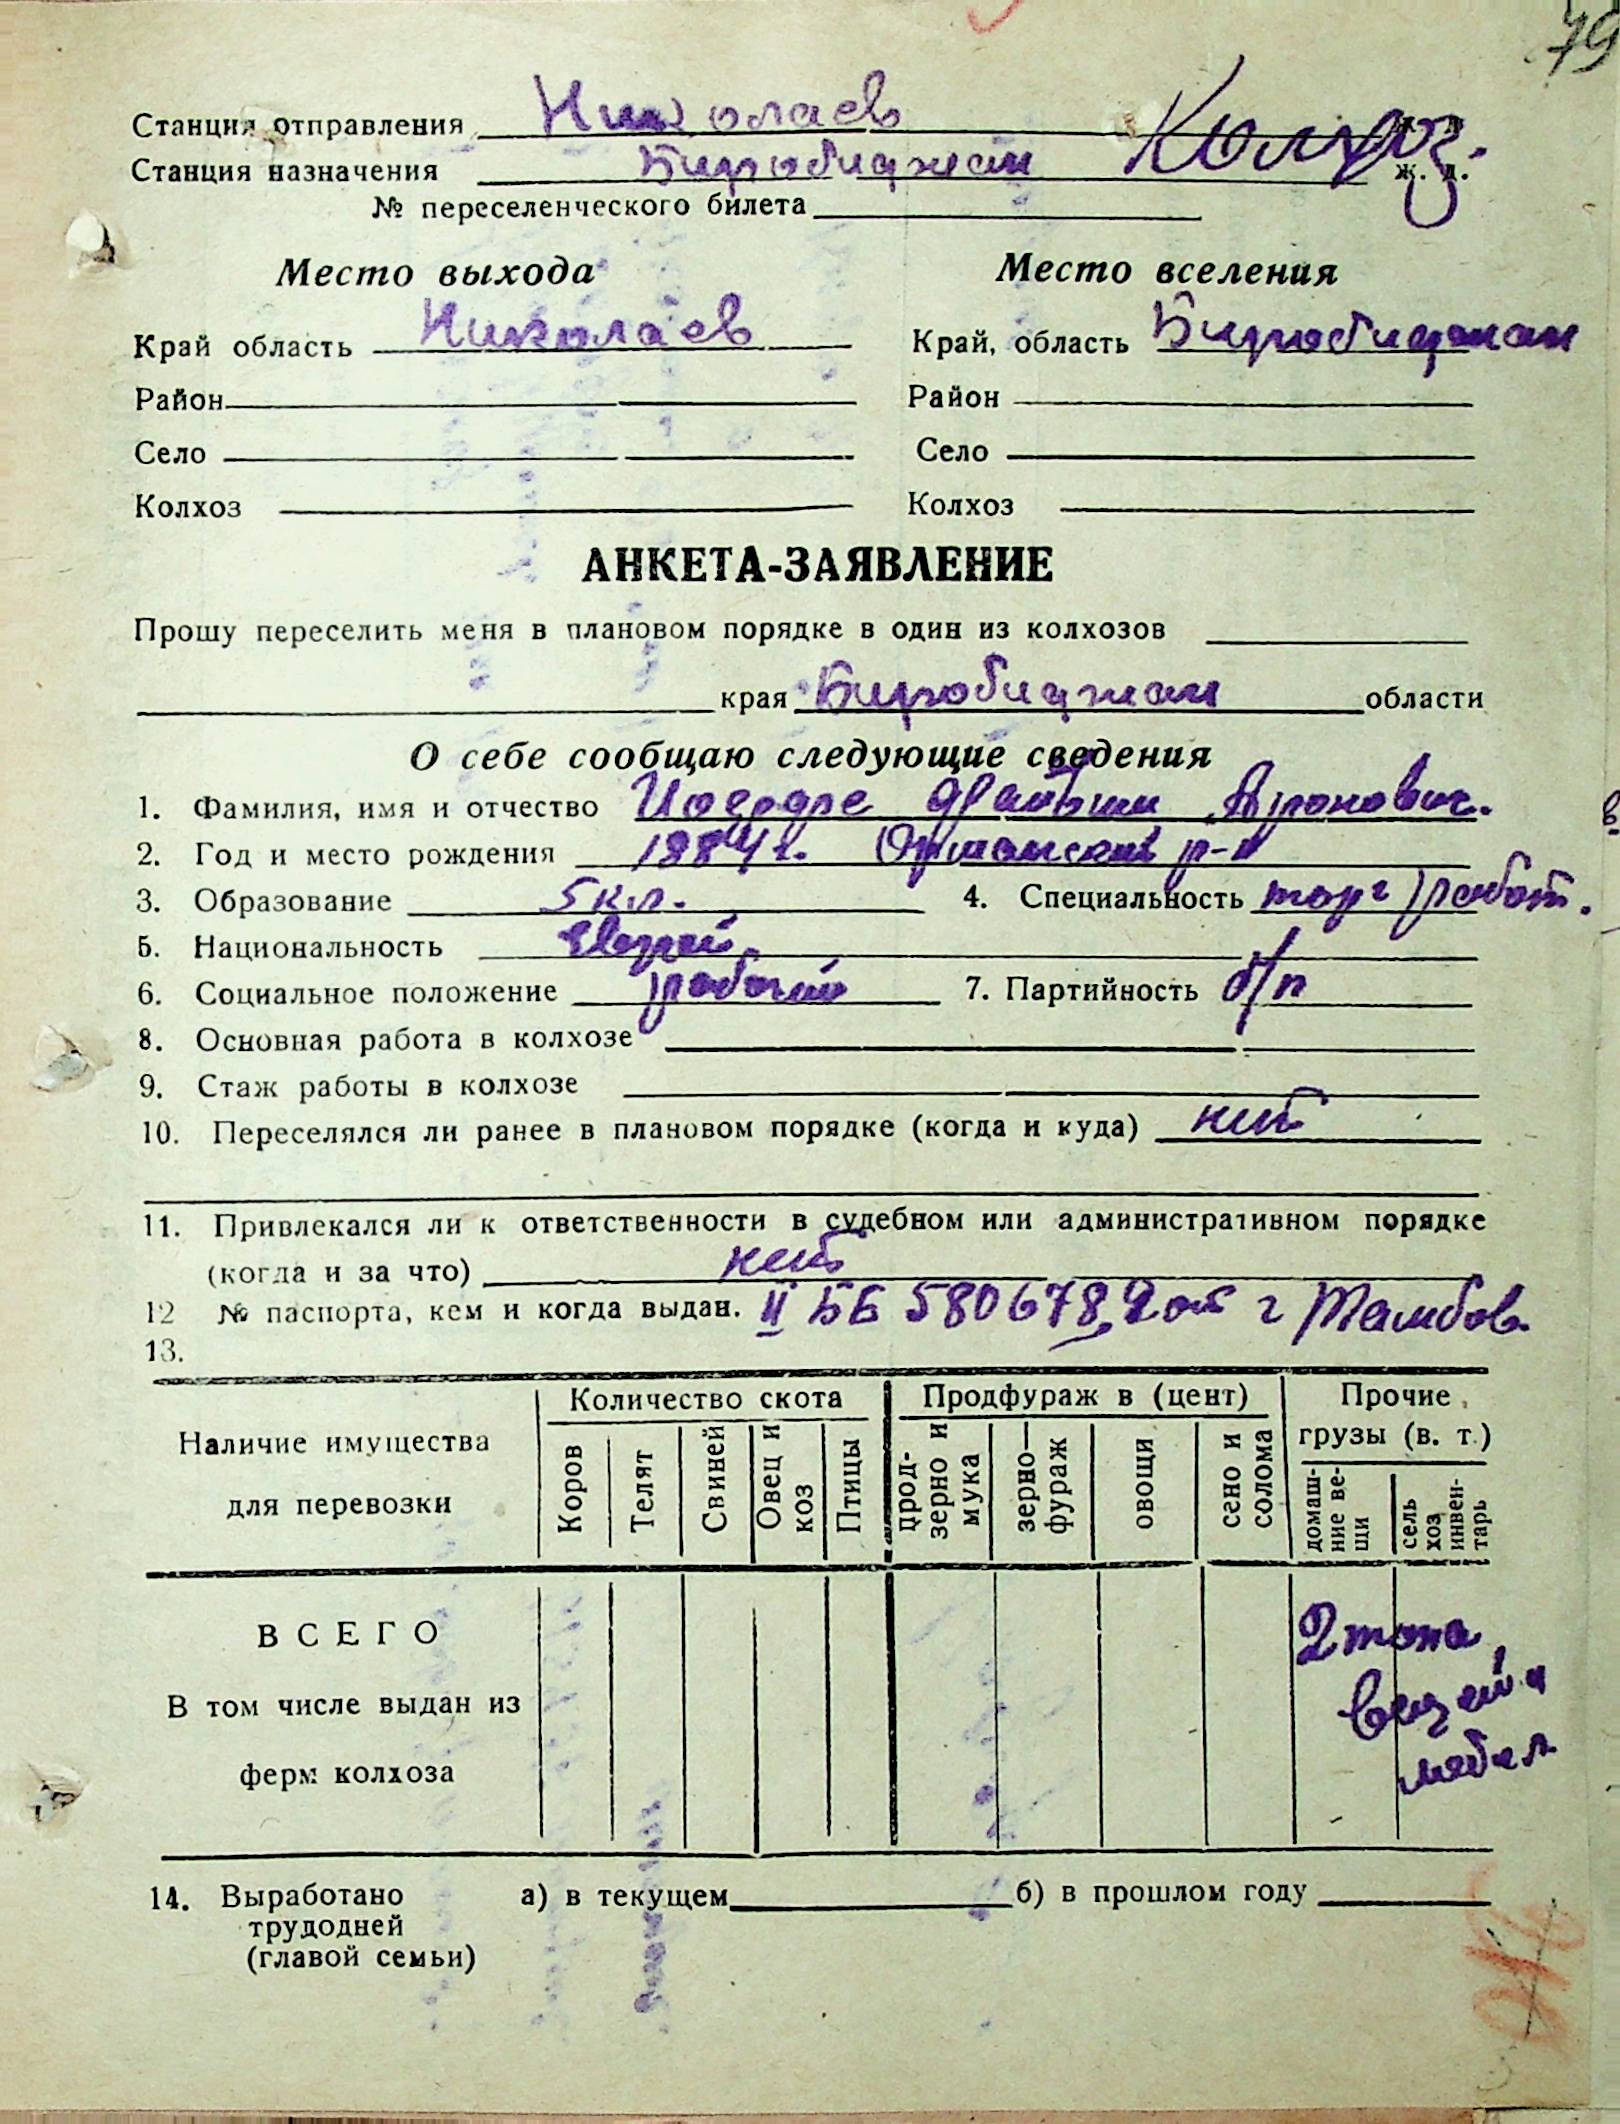 79
Станция отправления Николаев
Станция назначения Биробиджан ж. д.
№ переселенческого билета
Место выхода Место вселения
Край область Николаев Край, область Биробиджан
Район Район
Село Село
Колхоз Колхоз
АНКЕТА-ЗАЯВЛЕНИЕ
Прошу переселить меня в плановом порядке в один из колхозов
края Биробиджан области
О себе сообщаю следующие сведения
1. Фамилия, имя и отчество Аронович.
2. Год и место рождения 1884 г. р-н
3. Образование 5 кл. 4. Специальность торг работ.
5. Национальность еврей
6. Социальное положение рабочий 7. Партийность б/п
8. Основная работа в колхозе
9. Стаж работы в колхозе
10. Переселялся ли ранее в плановом порядке (когда и куда) нет
11. Привлекался ли к ответственности в судебном или административном порядке
(когда и за что) нет
12 № паспорта, кем и когда выдан. II ББ 580678 2 от г Тамбов
13.
Наличие имущества для перевозки
Количество скота Продфураж в (цент) Прочие грузы (в. т.)
Коров Телят Свиней Овец и коз Птицы прод-зерно и мука зерно-фураж овощи сено и солома домаш-ние ве-щи сель хоз инвен-тарь
ВСЕГО 2 тона
В том числе выдан из вещей и
ферм колхоза мебел
14. Выработано а) в текущем б) в прошлом году
трудодней
(главой семьи)